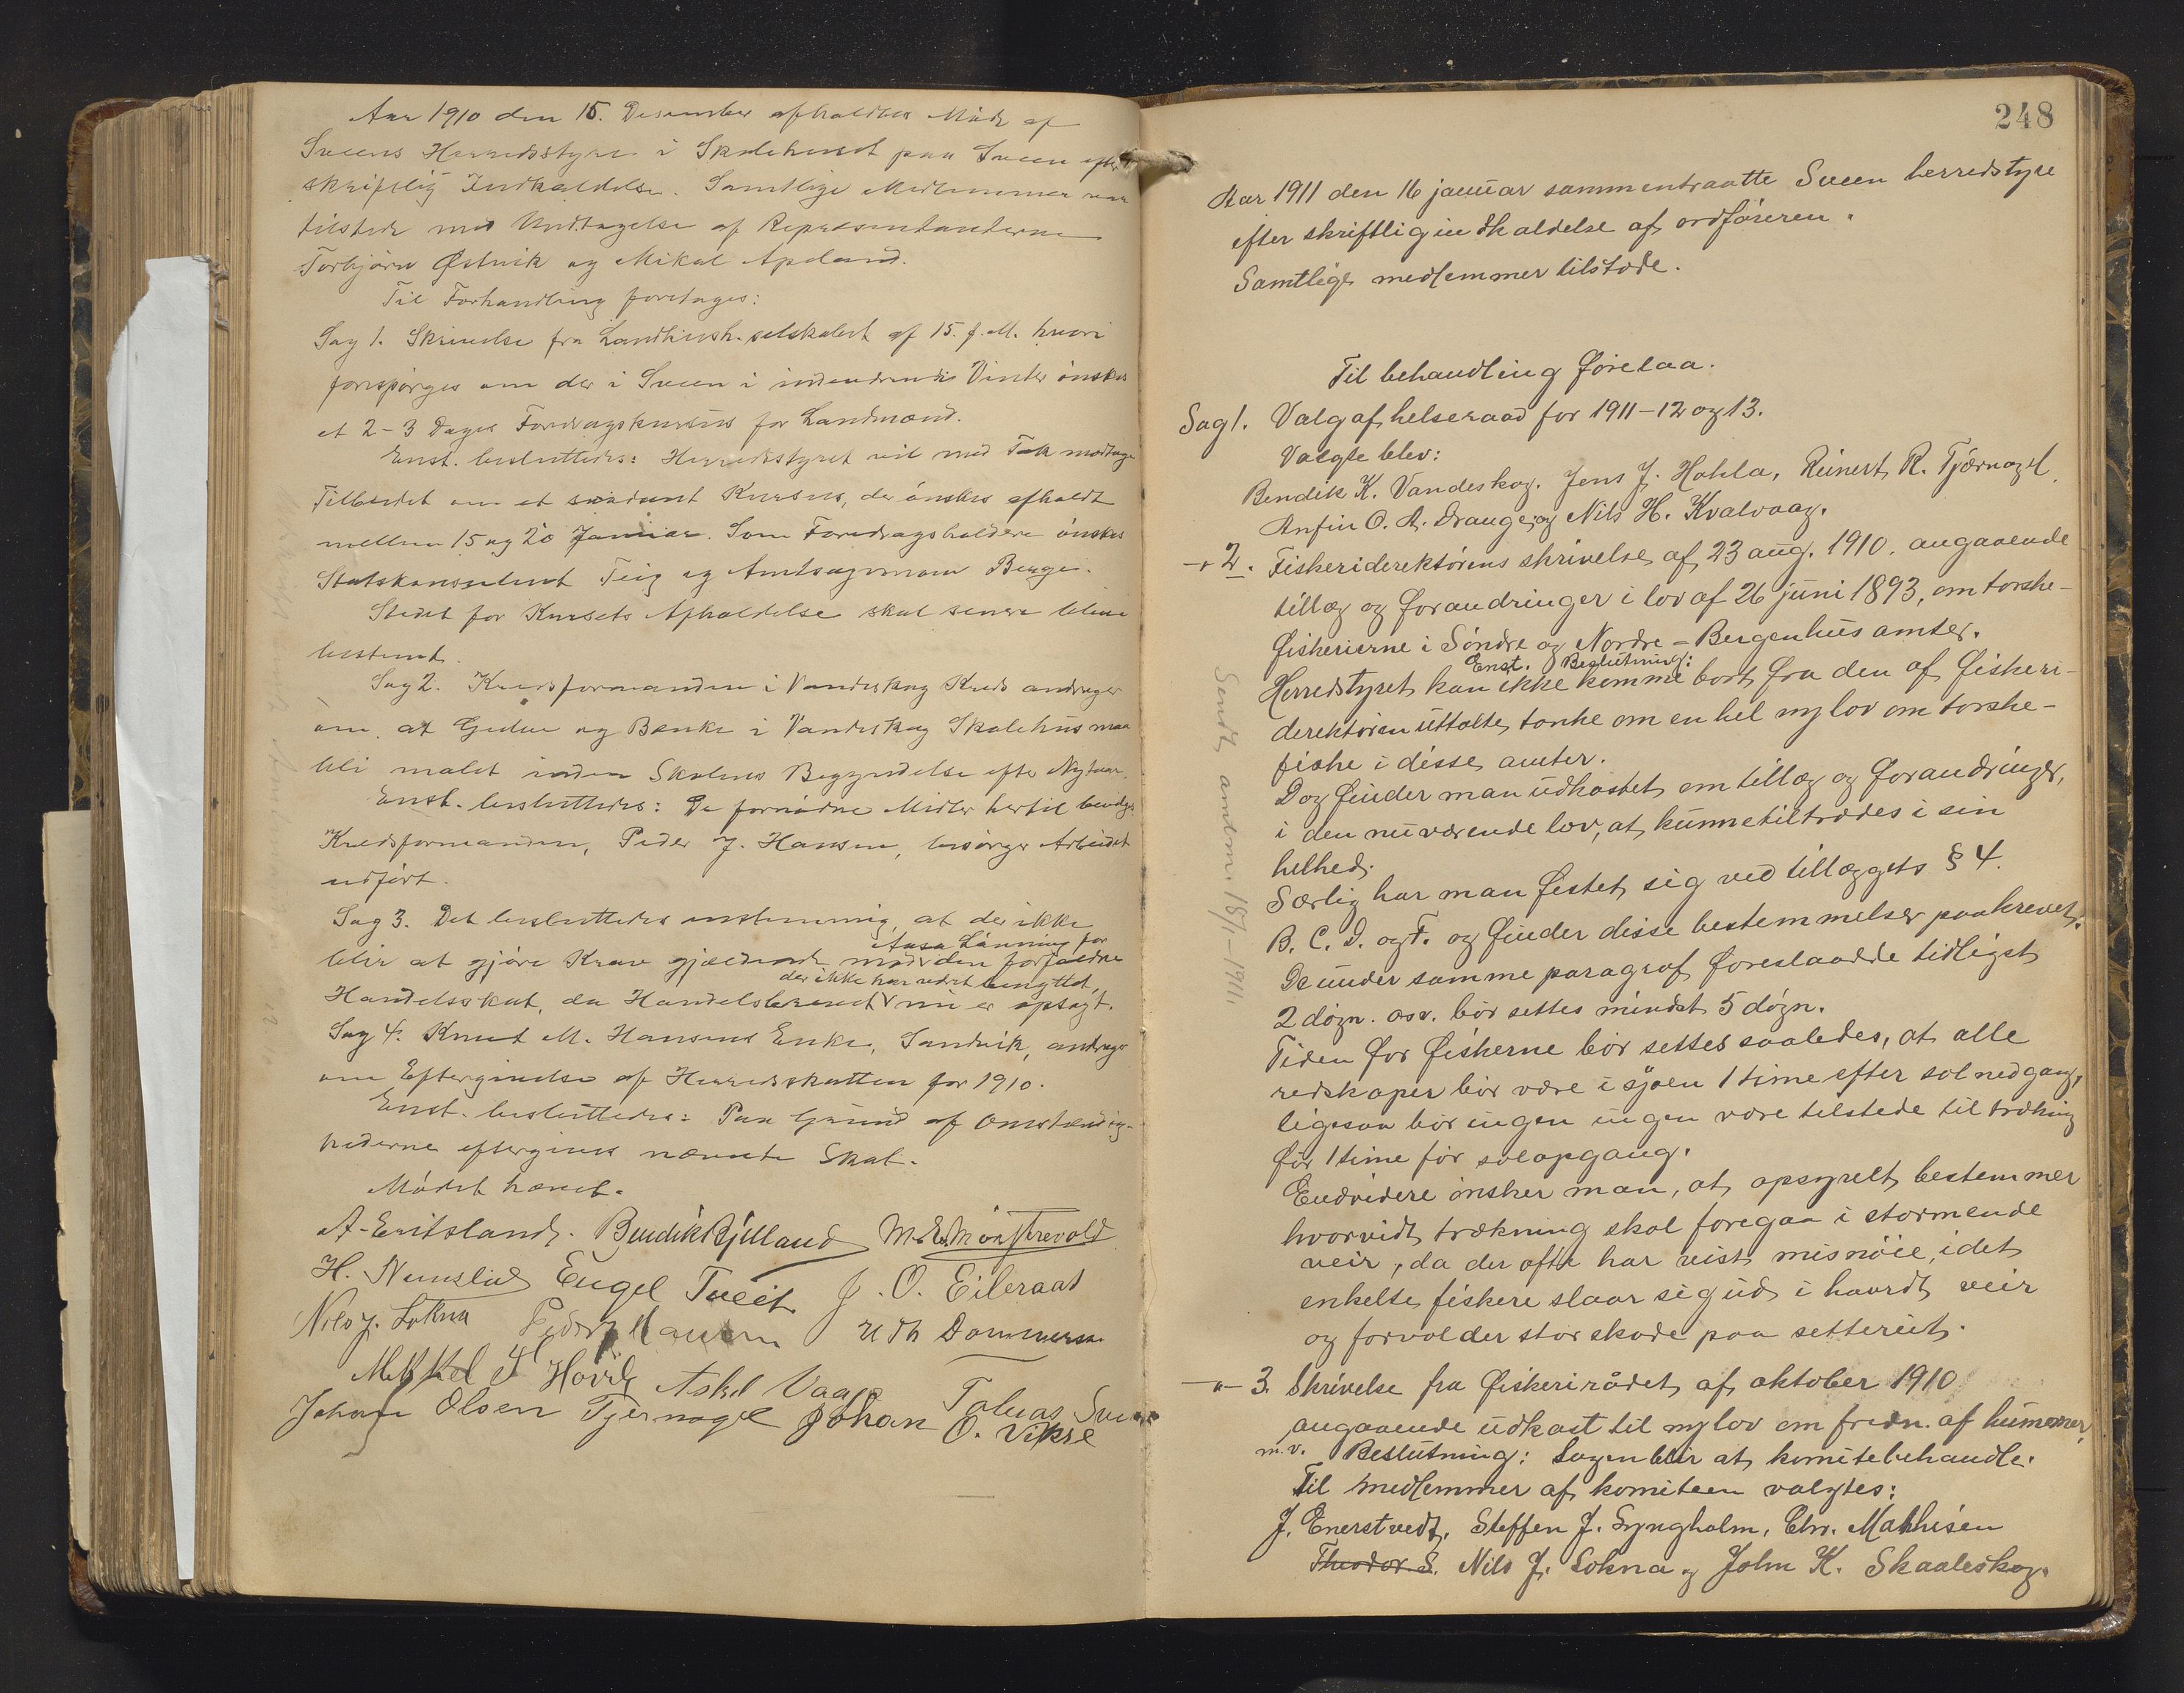 Aar 1910 den 15. Desember afholdtes Möde af
Sveens Herredsstyre i Skolehuset paa Sveen efter
skriftlig Indkaldelse. Samtlige Medlemmer var
tilstede med Undtagelse af Repræsentanterne
Torbjörn Østvik og Mikal Apeland.
Til Forhandling foretages:
Sag 1. Skrivelse fra Landhush. selskabet af 15. f. M. hvori
forespörges om der i Sveen i indeværende Vinter önskes
et 2-3 Dages Foredragskursus for Landmænd.
Enst. besluttedes: Herredsstyret vil med Tak modtage
Tilbudet om et saadant Kursus, der önskes afholdt
mellem 15 og 20 Januar. Som Foredragsholdere önskes
Statskonsulent Teig og Amtsagronom Berge.
Stedet for Kursets Afholdelse skal senere blive
bestemt.
Sag 2. Kredsformanden i Vandeskog Kreds andrager
om at Gulve og Benke i Vandeskog Skolehus maa
bli malet inden Skolens Begyndelse efter Nytaar.
Enst. besluttedes: De fornödne Midler hertil bevilges
Kredsformanden, Peder J. Hansen, besörger Arbeidet
udfört.
Sag 3. Det besluttedes enstemmig, at der ikke
blir at gjöre Krav gjældende mod Aasa Lünning for den forfaldne
Handelsskat, da Handelsbrevet der ikke har været benyttet, nu er opsagt.
Sag 4. Knut M. Hansens Enke, Sandvik, andrager
om Eftergivelse af Herredsskatten for 1910.
Enst. besluttedes: Paa Grund af Omstændig-
hederne eftergives nævnte Skat.
Mödet hævet.
A. Emitsland. Bendik Bjelland M. E. Mönstrevold
H. Nemslid Engel Tveit J. O. Eileraas
Nils J. Lokna Peder J Hansen U Th Dommersn
Mikkel H Hovda Askel Vaag Tobias Sveen
Johan Olsen Tjernagel Johan O. Vikse
248
Aar 1911 den 16 januar sammentraatte Sveen herredstyre
efter skriftlig indkaldelse af ordföreren.
Samtlige medlemmer tilstede.
Til behandling forelaa.
Sag 1. Valg af helseraad for 1911-12 og 13.
Valgte blev:
Bendik K. Vandeskog. Jens J. Hokla, Reinert R. Tjærnagel
Anfin O. A. Drange, og Nils H. Kvalvaag.
-"- 2. Fiskeridirektörens skrivelse af 23 aug. 1910. angaaende
tillæg og forandringer i lov af 26 juni 1893, om torske-
fiskerierne i Söndre og Nordre-Bergenhus amter.
Enst. Beslutning:
Herredstyret kan ikke komme bort fra den af fiskeri-
derektören uttalte tanke om en hel ny lov om torske-
fiske i disse amter.
Dog finder man udkastet om tillæg og forandringer,
i den nuværende lov, at kunne tiltrædes i sin
helhed.
Særlig har man festet sig ved tillæggets § 4.
B. C. D. og F. og finder disse bestemmelser paakrevet.
De under samme paragraf foreslaadde tidligst
2 dögn. osv. bör settes mindst 5 dögn.
Tiden for fiskerne bör settes saaledes, at alle
redskaper bör være i sjöen 1 time efter sol nedgang,
ligesaa bör ingen ingen være tilstede til trækning
för 1 time för solopgang.
Endvidere önsker man, at opsynet bestemmer
hvorvidt trækning skal foregaa i stormende
veir, da der ofte har vist misnöie, idet
enkelte fiskere slaar sig ud i haardt veir
og forvolder stor skade paa setteriet.
-"- 3. Skrivelse fra fiskerirådet af oktober 1910
angaaende udkast til ny lov om fredn. af hummer,
m.v. Beslutning: Sagen blir at komitebehandle.
Til medlemmer af komiteen valgtes:
J. Enerstvedt, Steffen J. Lyngholm, Chr. Mathisen
Theodor S. Nils J. Lokna og John K. Skaaleskog.
Sendt amtem. 18/1-1911.